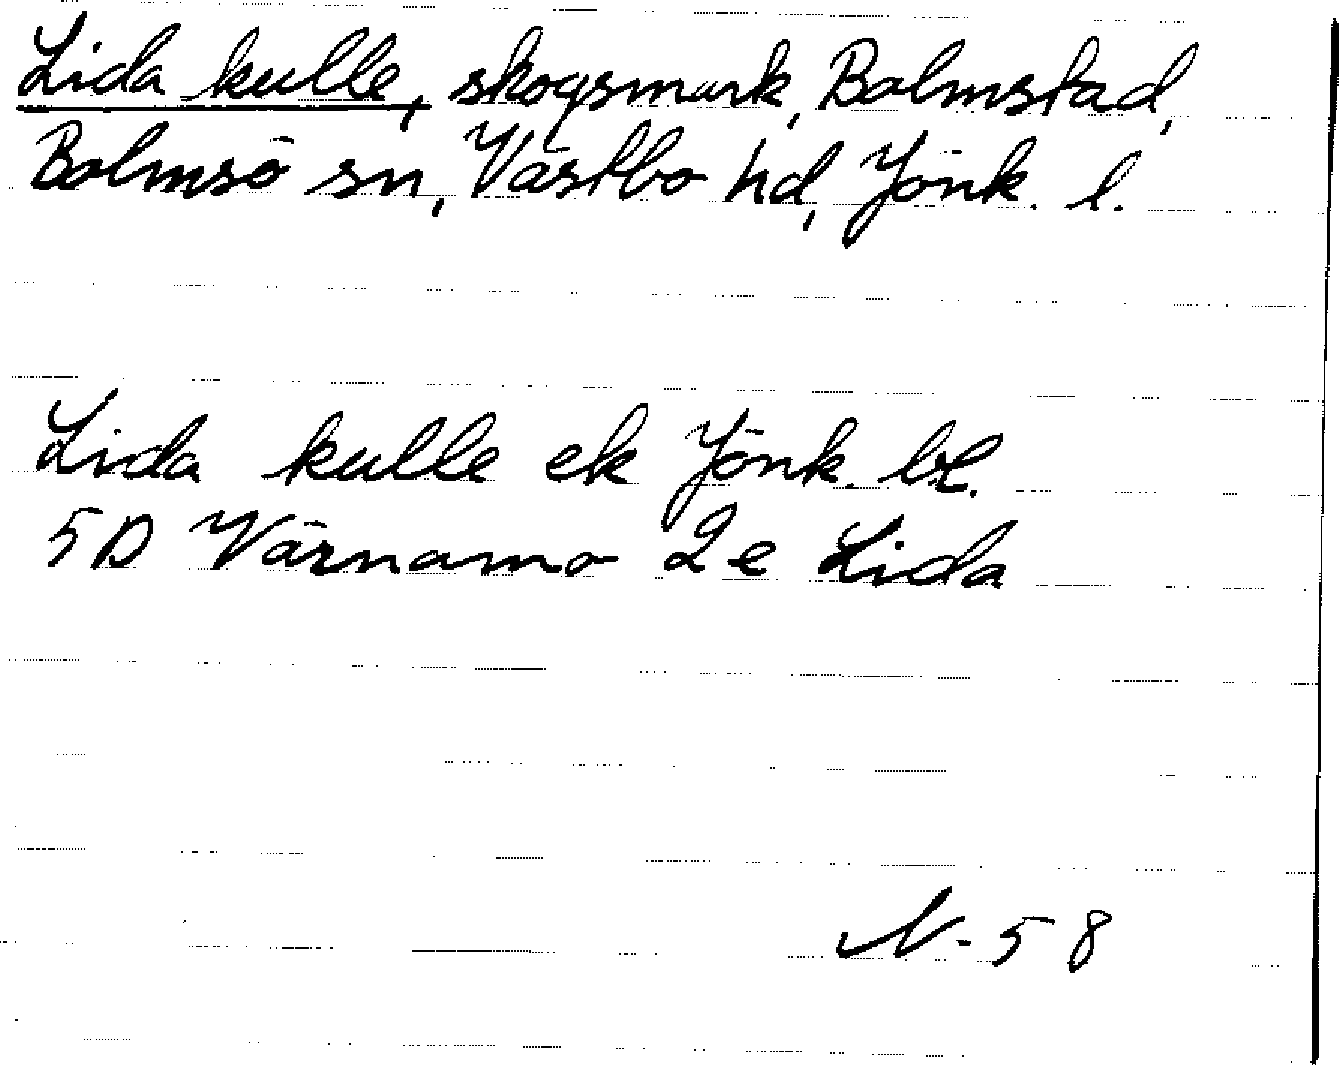 Lida kulle, skogsmark, Bolmstad,
Bolmsö sn, Västbo hd, Jönk. l.
Lida kulle ek Jönk. bl.
5D Värnamo 2e Lida
N-58